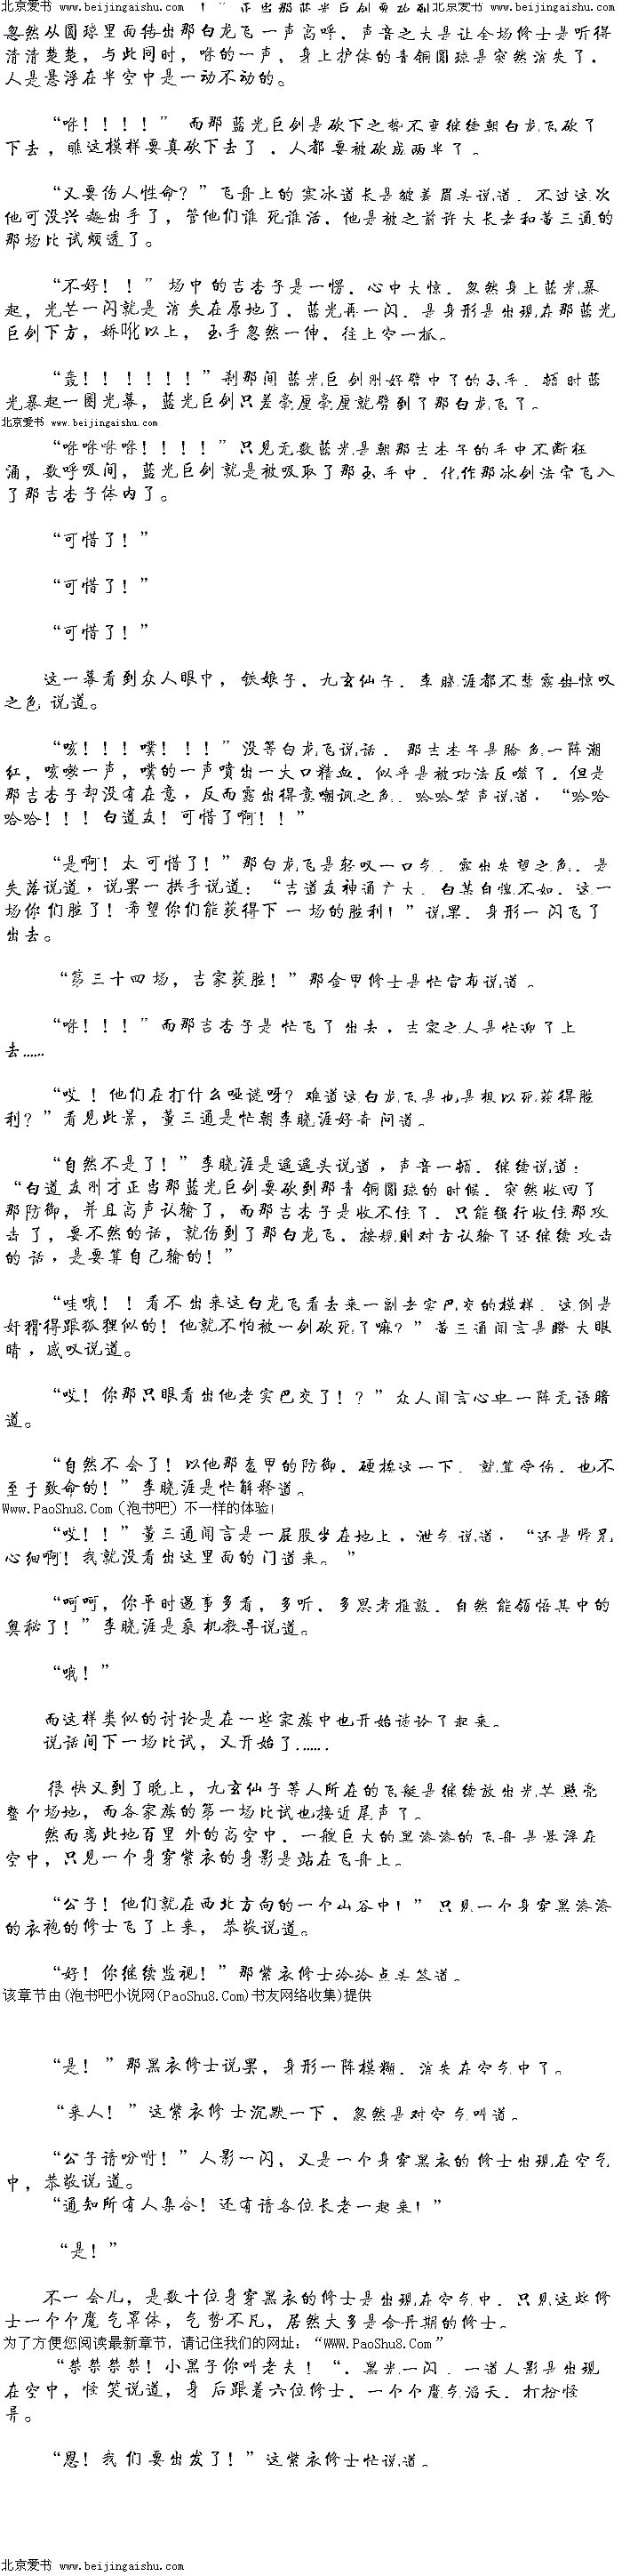 北京爱书  www.beijingaishu.com    ！”正当那蓝光巨剑要砍到 北京爱书  www.beijingaishu.com
忽然从圆球里面传出那白龙飞一声高呼，声音之大是让全场修士是听得
清清楚楚，与此同时，咻的一声，身上护体的青铜圆球是突然消失了，
人是悬浮在半空中是一动不动的。
“咻！！！！” 而那蓝光巨剑是砍下之势不变继续朝白龙飞砍了
下去，瞧这模样要真砍下去了，人都要被砍成两半了。
“又要伤人性命？”飞舟上的寒冰道长是皱着眉头说道，不过这次
他可没兴趣出手了，管他们谁死谁活，他是被之前许大长老和董三通的
那场比试烦透了。
“不好！！” 场中的吉杏子是一愣，心中大惊，忽然身上蓝光暴
起，光芒一闪就是消失在原地了，蓝光再一闪，是身形是出现在那蓝光
巨剑下方，娇吪以上，玉手忽然一伸，往上空一抓。
“轰！！！！！！”刹那间蓝光巨剑刚好劈中了的玉手，顿时蓝
光暴起一圈光幕，蓝光巨剑只差毫厘毫厘就劈到了那白龙飞了。
北京爱书  www.beijingaishu.com
“咻咻咻咻！！！！”只见无数蓝光是朝那吉杏子的手中不断狂
涌，数呼吸间，蓝光巨剑就是被吸取了那玉手中，化作那冰剑法宝飞入
了那吉杏子体内了。
“可惜了！”
“可惜了！”
“可惜了！”
这一幕看到众人眼中，铁娘子，九玄仙子，李晓涯都不禁露出惊叹
之色 说道。
“咳！！！噗！！！”没等白龙飞说话， 那吉杏子是脸色一阵潮
红，咳嗽一声，噗的一声喷出一大口精血，似乎是被功法反噬了，但是
那吉杏子却没有在意，反而露出得意嘲讽之色，哈哈笑声说道，“哈哈
哈哈！！！白道友！可惜了啊！！”
“是啊！太可惜了！”那白龙飞是轻叹一口气，露出失望之色，是
失落说道，说罢一拱手说道：“吉道友神通广大，白某自愧不如，这一
场你们胜了！希望你们能获得下一场的胜利！”说罢，身形一闪飞了
出去。
“第三十四场，吉家获胜！”那金甲修士是忙宣布说道。
“咻！！！”而那吉杏子是忙飞了出去，吉家之人是忙迎了上
去……
“哎！他们在打什么哑谜呀？难道这白龙飞是也是想以死获得胜
利？”看见此景，董三通是忙朝李晓涯好奇问道。
“自然不是了！”李晓涯是遥遥头说道，声音一顿，继续说道：
“白道友刚才正当那蓝光巨剑要砍到那青铜圆球的时候，突然收回了
那防御，并且高声认输了，而那吉杏子是收不住了，只能强行收住那攻
击了，要不然的话，就伤到了那白龙飞，按规则对方认输了还继续攻击
的话，是要算自己输的！”
“哇哦！！看不出来这白龙飞看去来一副老实巴交的模样，这倒是
奸猾得跟狐狸似的！他就不怕被一剑砍死了嘛？”董三通闻言是瞪大眼
睛，感叹说道。
“哎！你那只眼看出他老实巴交了！？”众人闻言心中一阵无语暗
道。
“自然不会了！以他那盔甲的防御，硬挨这一下，就算受伤，也不
至于致命的！”李晓涯是忙解释道。
Www.PaoShu8.Com（泡书吧）不一样的体验！
“哎！！”董三通闻言是一屁股坐在地上，泄气说道，“还是师兄
心细啊！我就没看出这里面的门道来。”
“呵呵，你平时遇事多看，多听，多思考推敲，自然能领悟其中的
奥秘了！”李晓涯是乘机教导说道。
“哦！”
而这样类似的讨论是在一些家族中也开始谈论了起来。
说话间下一场比试，又开始了……
很快又到了晚上，九玄仙子等人所在的飞艇是继续放出光芒照亮
整个场地，而各家族的第一场比试也接近尾声了。
然而离此地百里外的高空中，一艘巨大的黑漆漆的飞舟是悬浮在
空中，只见一个身穿紫衣的身影是站在飞舟上。
“公子！他们就在西北方向的一个山谷中！”只见一个身穿黑漆漆
的衣袍的修士飞了上来，恭敬说道。
“好！你继续监视！”那紫衣修士冷冷点头答道。
该章节由(泡书吧小说网(PaoShu8.Com)书友网络收集)提供
“是！”那黑衣修士说罢，身形一阵模糊，消失在空气中了。
“来人！”这紫衣修士沉默一下，忽然是对空气叫道。
“公子请吩咐！”人影一闪，又是一个身穿黑衣的修士出现在空气
中，恭敬说道。
“通知所有人集合！还有请各位长老一起来！”
“是！”
不一会儿，是数十位身穿黑衣的修士是出现在空气中，只见这些修
士一个个魔气罩体，气势不凡，居然大多是合丹期的修士。
为了方便您阅读最新章节，请记住我们的网址：“WWW.PaoShu8.Com”
“桀桀桀桀！小黑子你叫老夫！“，黑光一闪，一道人影是出现
在空中，怪笑说道，身后跟着六位修士，一个个魔气滔天，打扮怪
异。
“恩！我们要出发了！”这紫衣修士忙说道。
北京爱书  www.beijingaishu.com